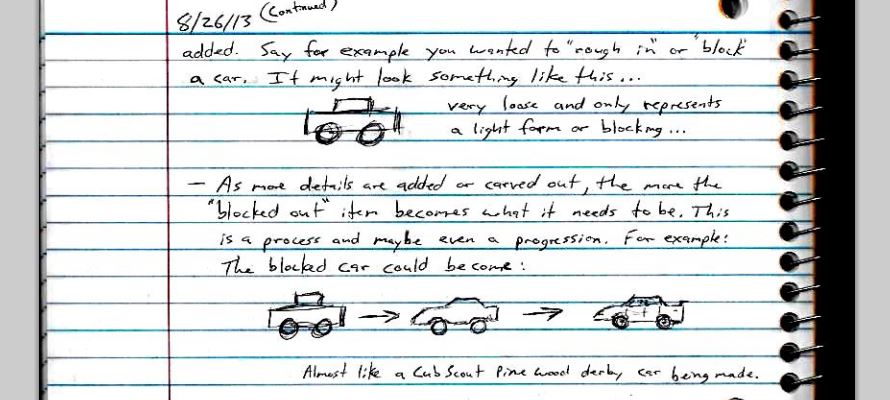 8/26/13 (Continued)
added. Say for example you wanted to "rough in" or "block"
a car. It might look something like this...
very loose and only represents
a light form or blocking...
— As more details are added or carved out, the more the
"blocked out" item becomes what it needs to be. This
is a process and maybe even a progression. For example:
The blocked car could become:
Almost like a Cub Scout Pine wood derby car being made.